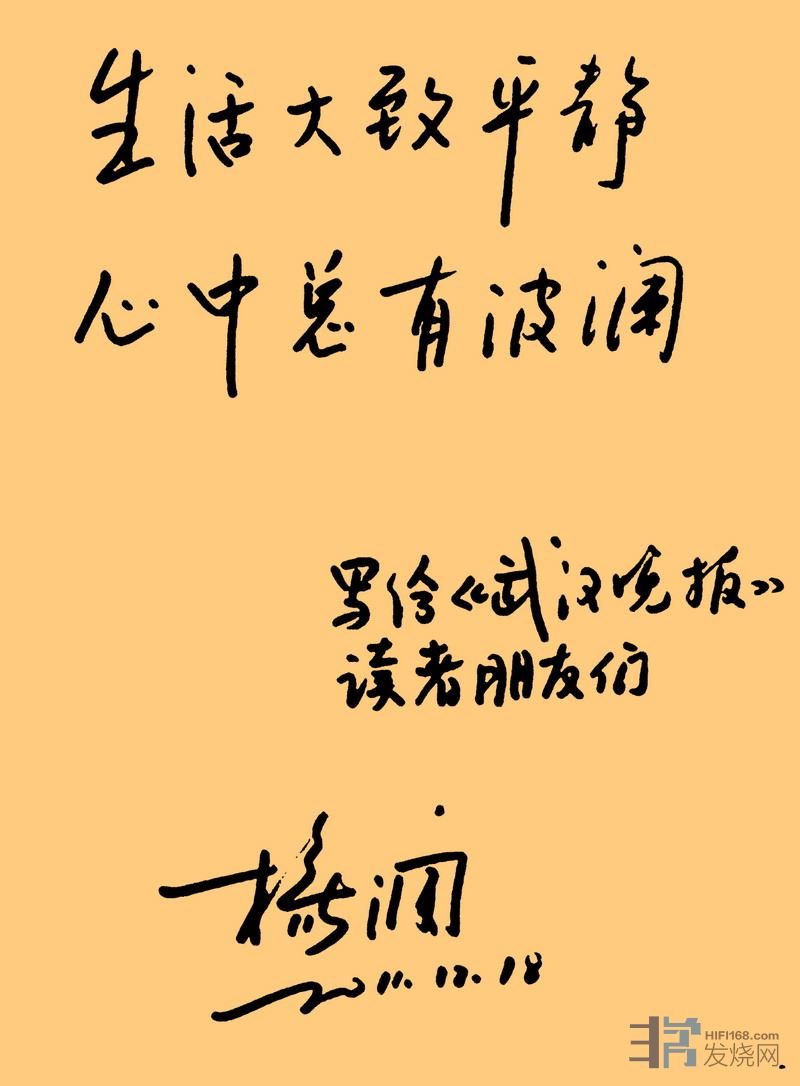 生活大致平静
心中总有波澜
写给《武汉晚报》
读者朋友们
2011.12.18
HIFI168.com
发烧网